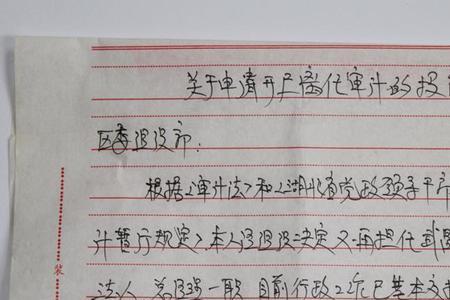 关于申请开展离任审计的报
区委组织部：
根据《审计法》和《湖北省党政领导干部
计暂行规定》本人因组织决定不再担任武
法人 总经理一职 目前行政工作已基本交
装